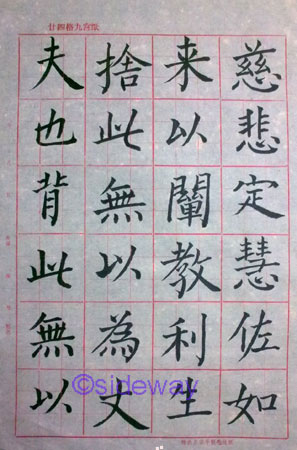 紙宮九格四廿
慈悲定慧佐如
来以闡教利生
捨此無以為丈
夫也背此無以
©sideway